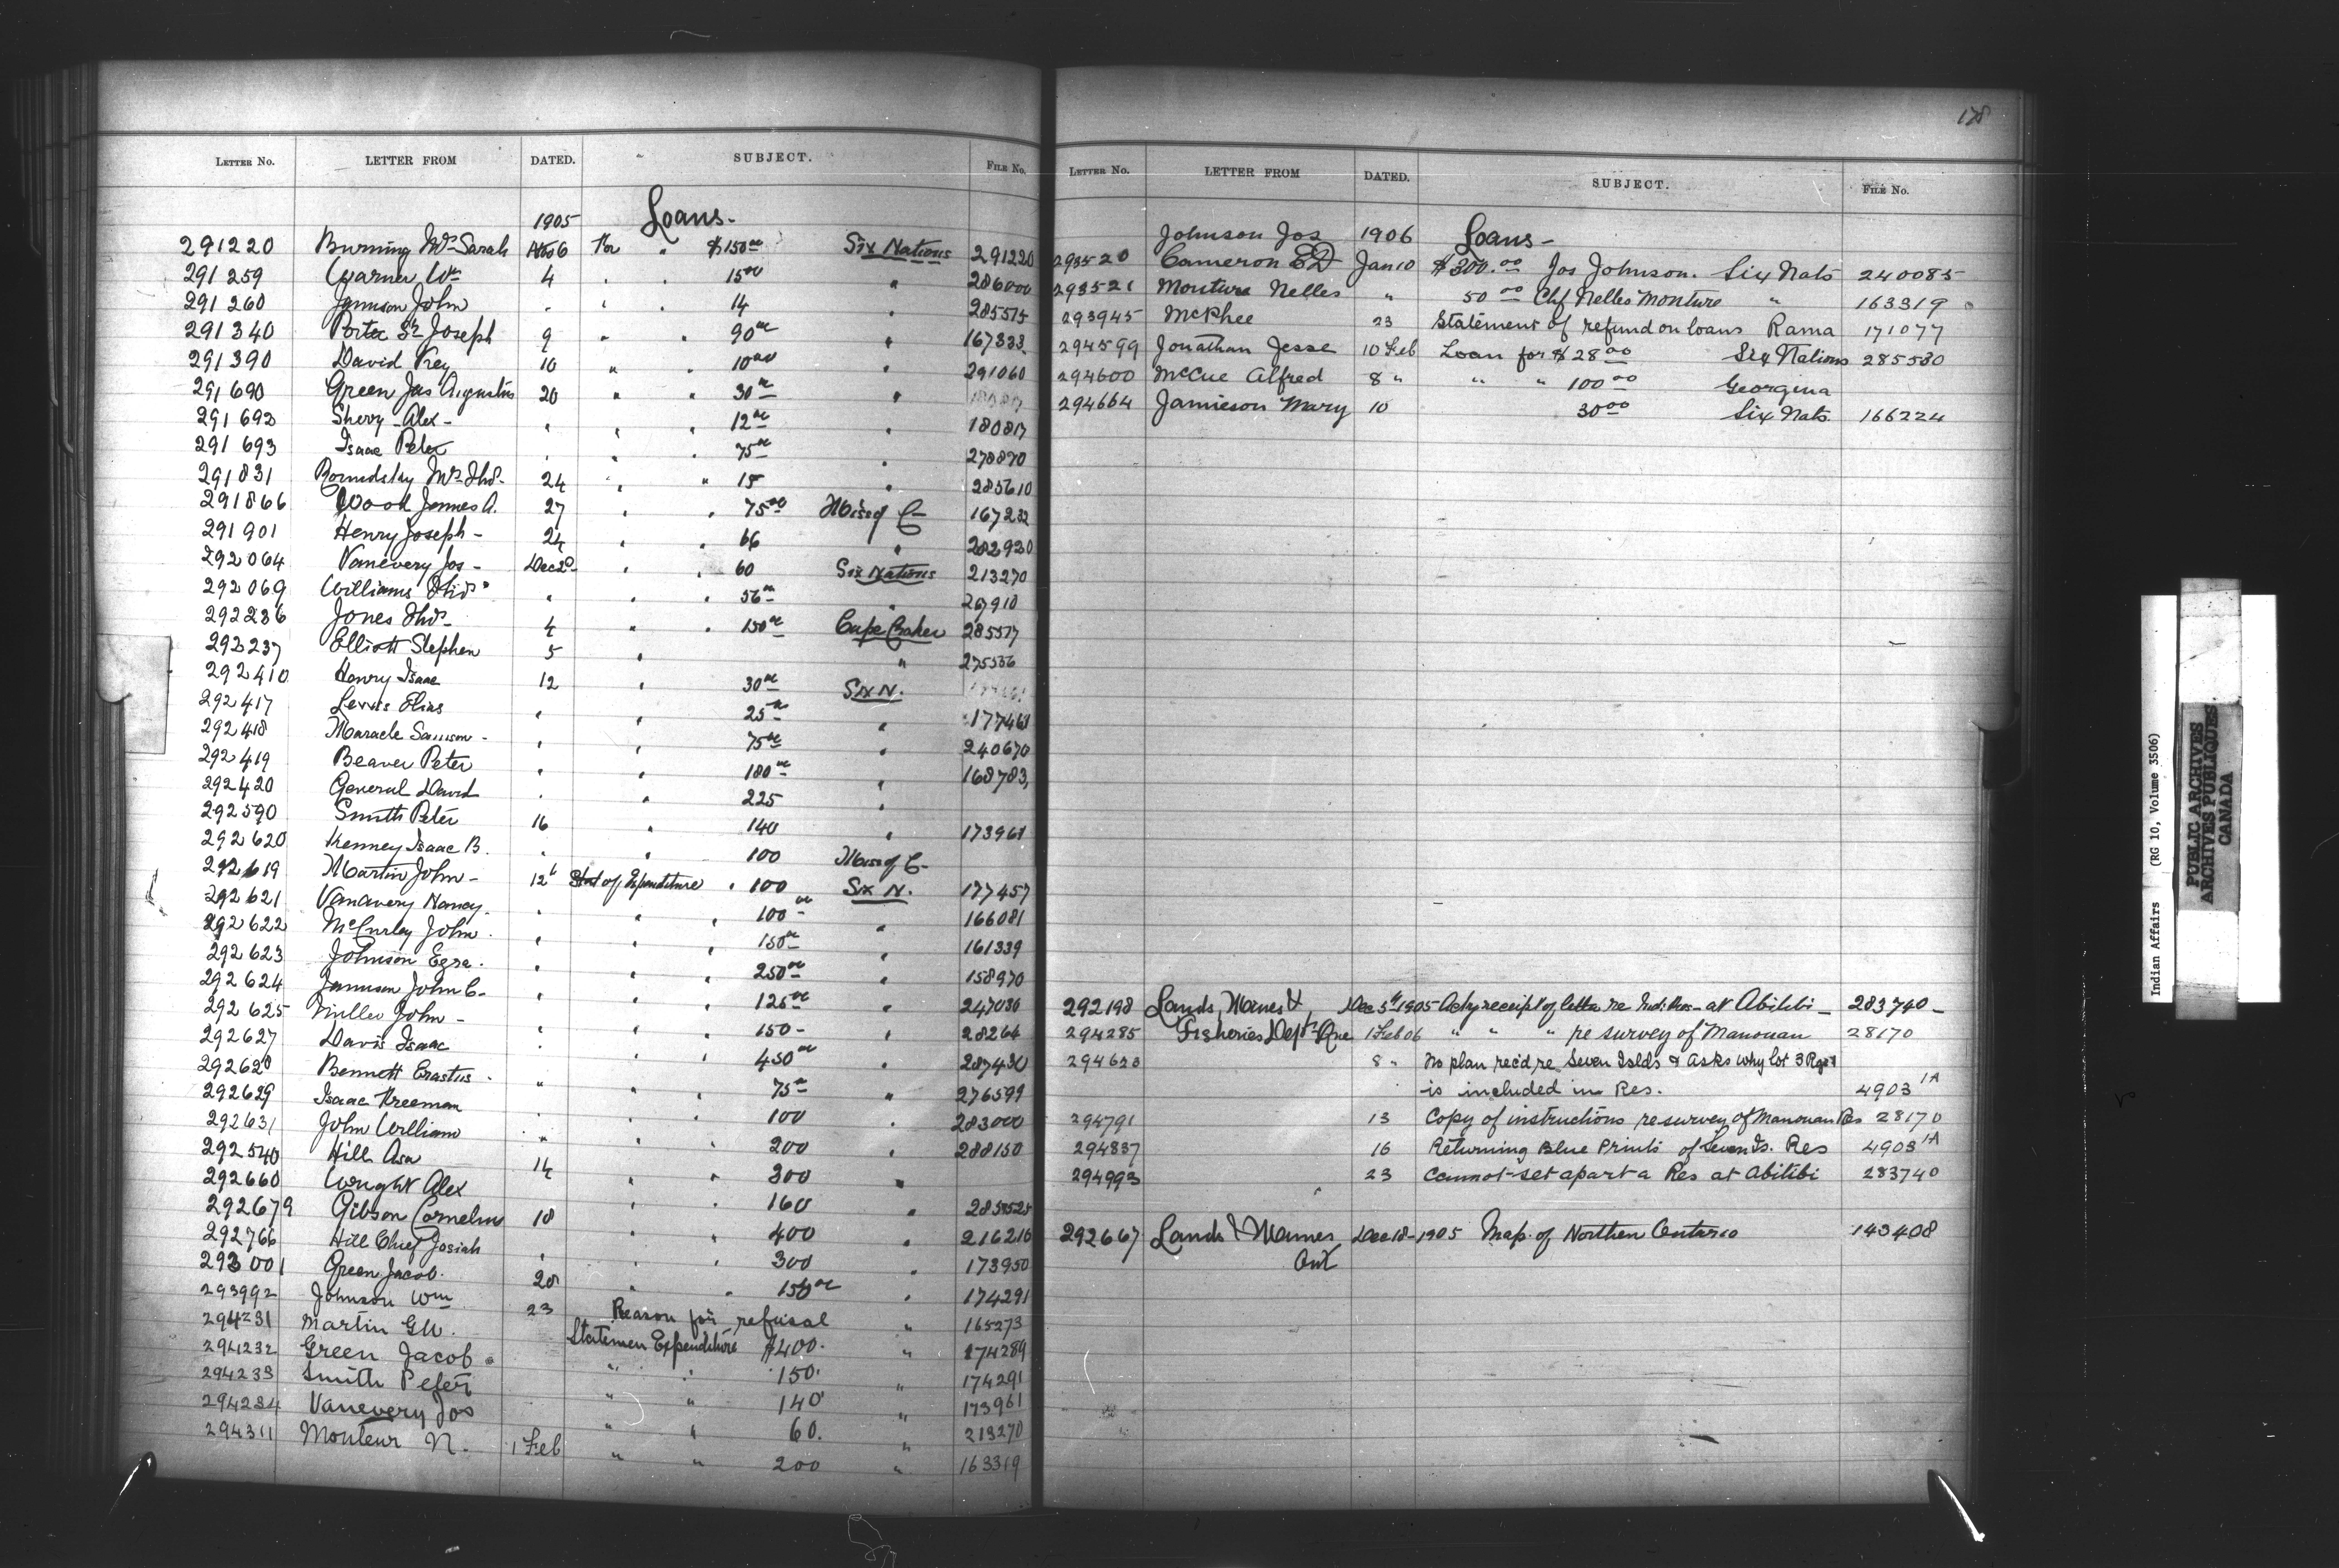 LETTER No. LETTER FROM DATED. SUBJECT. FILE No.
1905 Loans-
291220 Burning Mrs Sarah Nov 6 For " $150 00 Six Nations 291220
291259 Garner Wm 4 " " 15 00 " 286000
291260 Jamison John " " " 14 " 285575
291340 Porter Sr Joseph 9 " " 90 00 " 167333
291390 David Key 10 " " 10 00 " 291060
291690 Green Jas Augustus 20 " " 30 00 "
291692 Sherry Alex - " " " 12 00 " 180817
291693 Isaac Peter " " " 75 00 " 278870
291831 Roundsky Mrs Thos- 24 " " 15 " 285610
291866 Wood James A. 27 " " 75 00 Miss of C- 167232
291901 Henry Joseph - 24 " " 66 " 282920
292064 Vanevery Jos - Dec 2d " " 60 Six Nations 213270
292069 Williams Thos " " " 56 00 " 267910
292236 Jones Thos- 4 " " 150 00 Cape Croker 285577
292237 Elliott Stephen 5 " " 275536
292410 Henry Isaac 12 " 30 00 Six N.
292417 Lewis Elias " " 25 00 " 177461
292418 Maracle Samson - " " 75 00 " 240670
292419 Beaver Peter " " 180 00 " 168783
292420 General David " " 225 "
292590 Smith Peter 16 " 140 " 173961
292620 Kenney Isaac B. " " 100 Miss of C-
292619 Martin John - 12 Stat of Expenditure " 100 Six N. 177457
292621 Vanavery Nancy " " " 100 00 " 166081
292622 McCurley John " " " 150 00 " 161339
292623 Johnson Ezra " " " 250 00 " 158970
292624 Jamison John C- " " " 125 00 " 247036
292625 Miller John - " " " 150 - " 28264
292627 Davis Isaac " " " 450 00 " 287430
292628 Bennett Erastus " " " 75 00 " 276599
292629 Isaac Freeman " " " 100 " 283000
292631 John William " " " 200 " 288150
292540 Hill Asa 14 " " 300 "
292660 Wright Alex " " 160 " 285525
292679 Gibson Cornelius 18 " " 400 " 216216
292766 Hill Chief Josiah " " " 300 " 173950
293001 Green Jacob. 28 " " 150 00 " 174291
293992 Johnson Wm 23 Reason for refusal " 165273
294231 Martin G W. Statemen Expenditure $400. " 174289
294232 Green Jacob " " 150. " 174291
294233 Smith Peter " " 140 " 173961
294234 Vanevery Jos " " 60. " 213270
294311 Monteur N. 1 Feb " " 200 " 163319
178
LETTER No. LETTER FROM DATED. SUBJECT. FILE No.
Johnson Jos 1906 Loans -
293520 Cameron E D Jan 10 $300.00 Jos Johnson. Six Nats 240085
293521 Monture Nelles " 50 00 Chf Nelles Monture " 163319
293945 McPhee 23 Statement of refund on loans Rama 171077
294599 Jonathan Jesse 10 Feb Loan for $28 00 Six Nations 285530
294600 McCue Alfred 8 " " " 100 00 Georgina
294664 Jamieson Mary 10 30 00 Six Nats. 166224
292198 Lands, Mines & Dec 5th 1905 Ackg receipt of letter re Ind. Res- at Abitibi - 283740 -
294285 Fisheries Dept Que 1 Feb 06 " " " re survey of Manouan 28170
294623 8 " No plan rec'd re Seven Islds & Asks why lot 3 Rge 1
is included in Res. 4903 1A
294791 13 Copy of instructions re survey of Manouan Res 28170
294837 16 Returning Blue Prints of Seven Is. Res 4903 1A
294993 23 Cannot set apart a Res at Abitibi 283740
292667 Lands & Mines Dec 18- 1905 Map of Northen Ontario 143408
Ont
Indian Affairs (RG 10, Volume 3506)
PUBLIC ARCHIVES
ARCHIVES PUBLIQUES
CANADA